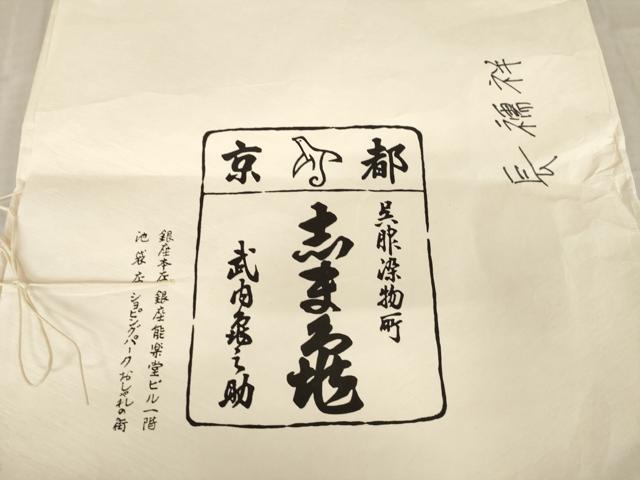 長襦袢
京都
呉服染物所
志ま亀
武内亀之助
銀座本店 銀座能楽堂ビル一階
池袋店 ショッピングパークおしゃれの街